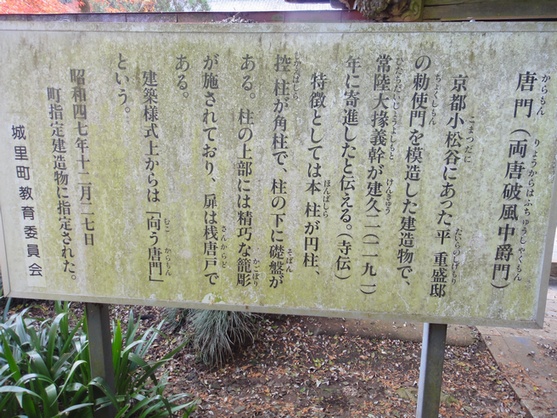 唐門（両唐破風中爵門）
京都小松谷にあった平 重盛邸
の勅使門を模造した建造物で、
常陸大掾義幹が建久二（一一九一）
年に寄進したと伝える。（寺伝）
特徴としては本柱が円柱、
控柱が角柱で、柱の下に礎盤が
ある。柱の上部には精巧な籠彫
が施されており、扉は桟唐戸で
ある。
建築様式上からは「向う唐門」
という。
昭和四七年十二月二七日
町指定建造物に指定された。
城里町教育委員会